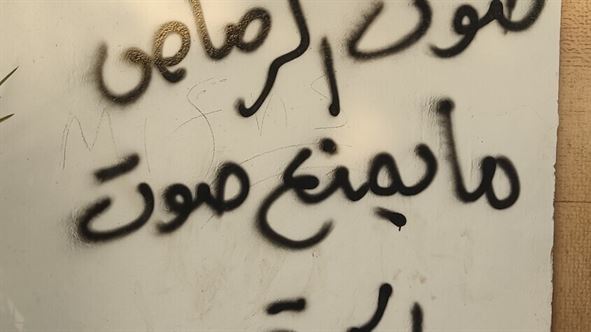 صوت الرصاص
ما يمنع صوت